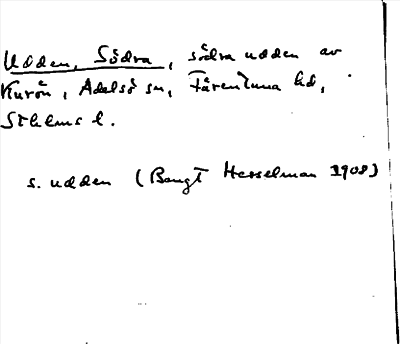 Udden, Södra, södra udden av
Kurön, Adelsö sn, Färentuna hd,
Sthlms l.
s. udden (Bengt Hesselman 1908)